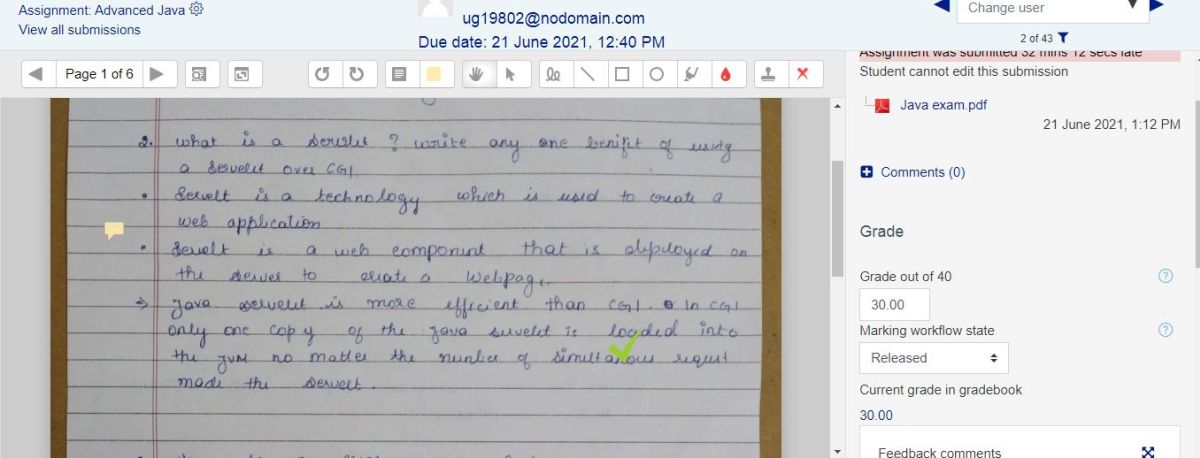 Assignment: Advanced Java
View all submissions
ug19802@nodomain.com
Due date: 21 June 2021, 12:40 PM
Change user
2 of 43
Assignment was submitted 32 mins 12 secs late
Student cannot edit this submission
Java exam.pdf
21 June 2021, 1:12 PM
Comments (0)
Grade
Grade out of 40
30.00
Marking workflow state
Released
Current grade in gradebook
30.00
Feedback comments
Page 1 of 6
2. what is a servlet ? write any one benifit of using
a sevelet over CGI
• Servelt is a technology which is used to create a
web application
• Sevelt is a web component that is deployed on
the server to create a webpage
→ Java servelet is more efficient than CGI. In CGI
only one copy of the Java suvelet is loaded into
the JVM no matter the number of simultanous request
made the servelt.